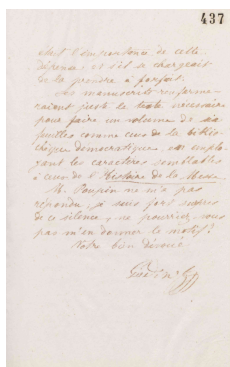 437
était l'importance de cette
dépense et s'il se chargeait
de la prendre à forfait.
Les manuscrits renferme-
raient juste le texte nécessaire
pour faire un volume de six
feuilles comme ceux de la biblio-
thèque démocratique, en emplo-
yant les caractères semblables
à ceux de l'Histoire de la Messe.
M. Poupin ne m'a pas
répondu, je suis fort surpris
de ce silence, ne pourriez-vous
pas m'en donner le motif?
Votre bien dévoué